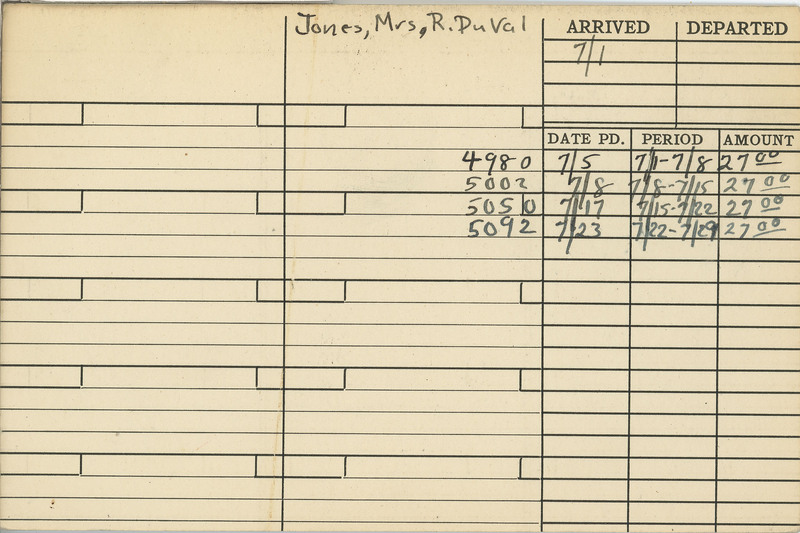 Jones, Mrs, R. DuVal
ARRIVED DEPARTED
7/1
DATE PD. PERIOD AMOUNT
4980 7/5 7/1-7/8 27 00
5002 7/8 7/8-7/15 27 00
5050 7/17 7/15-7/22 27 00
5092 7/23 7/22-7/29 27 00